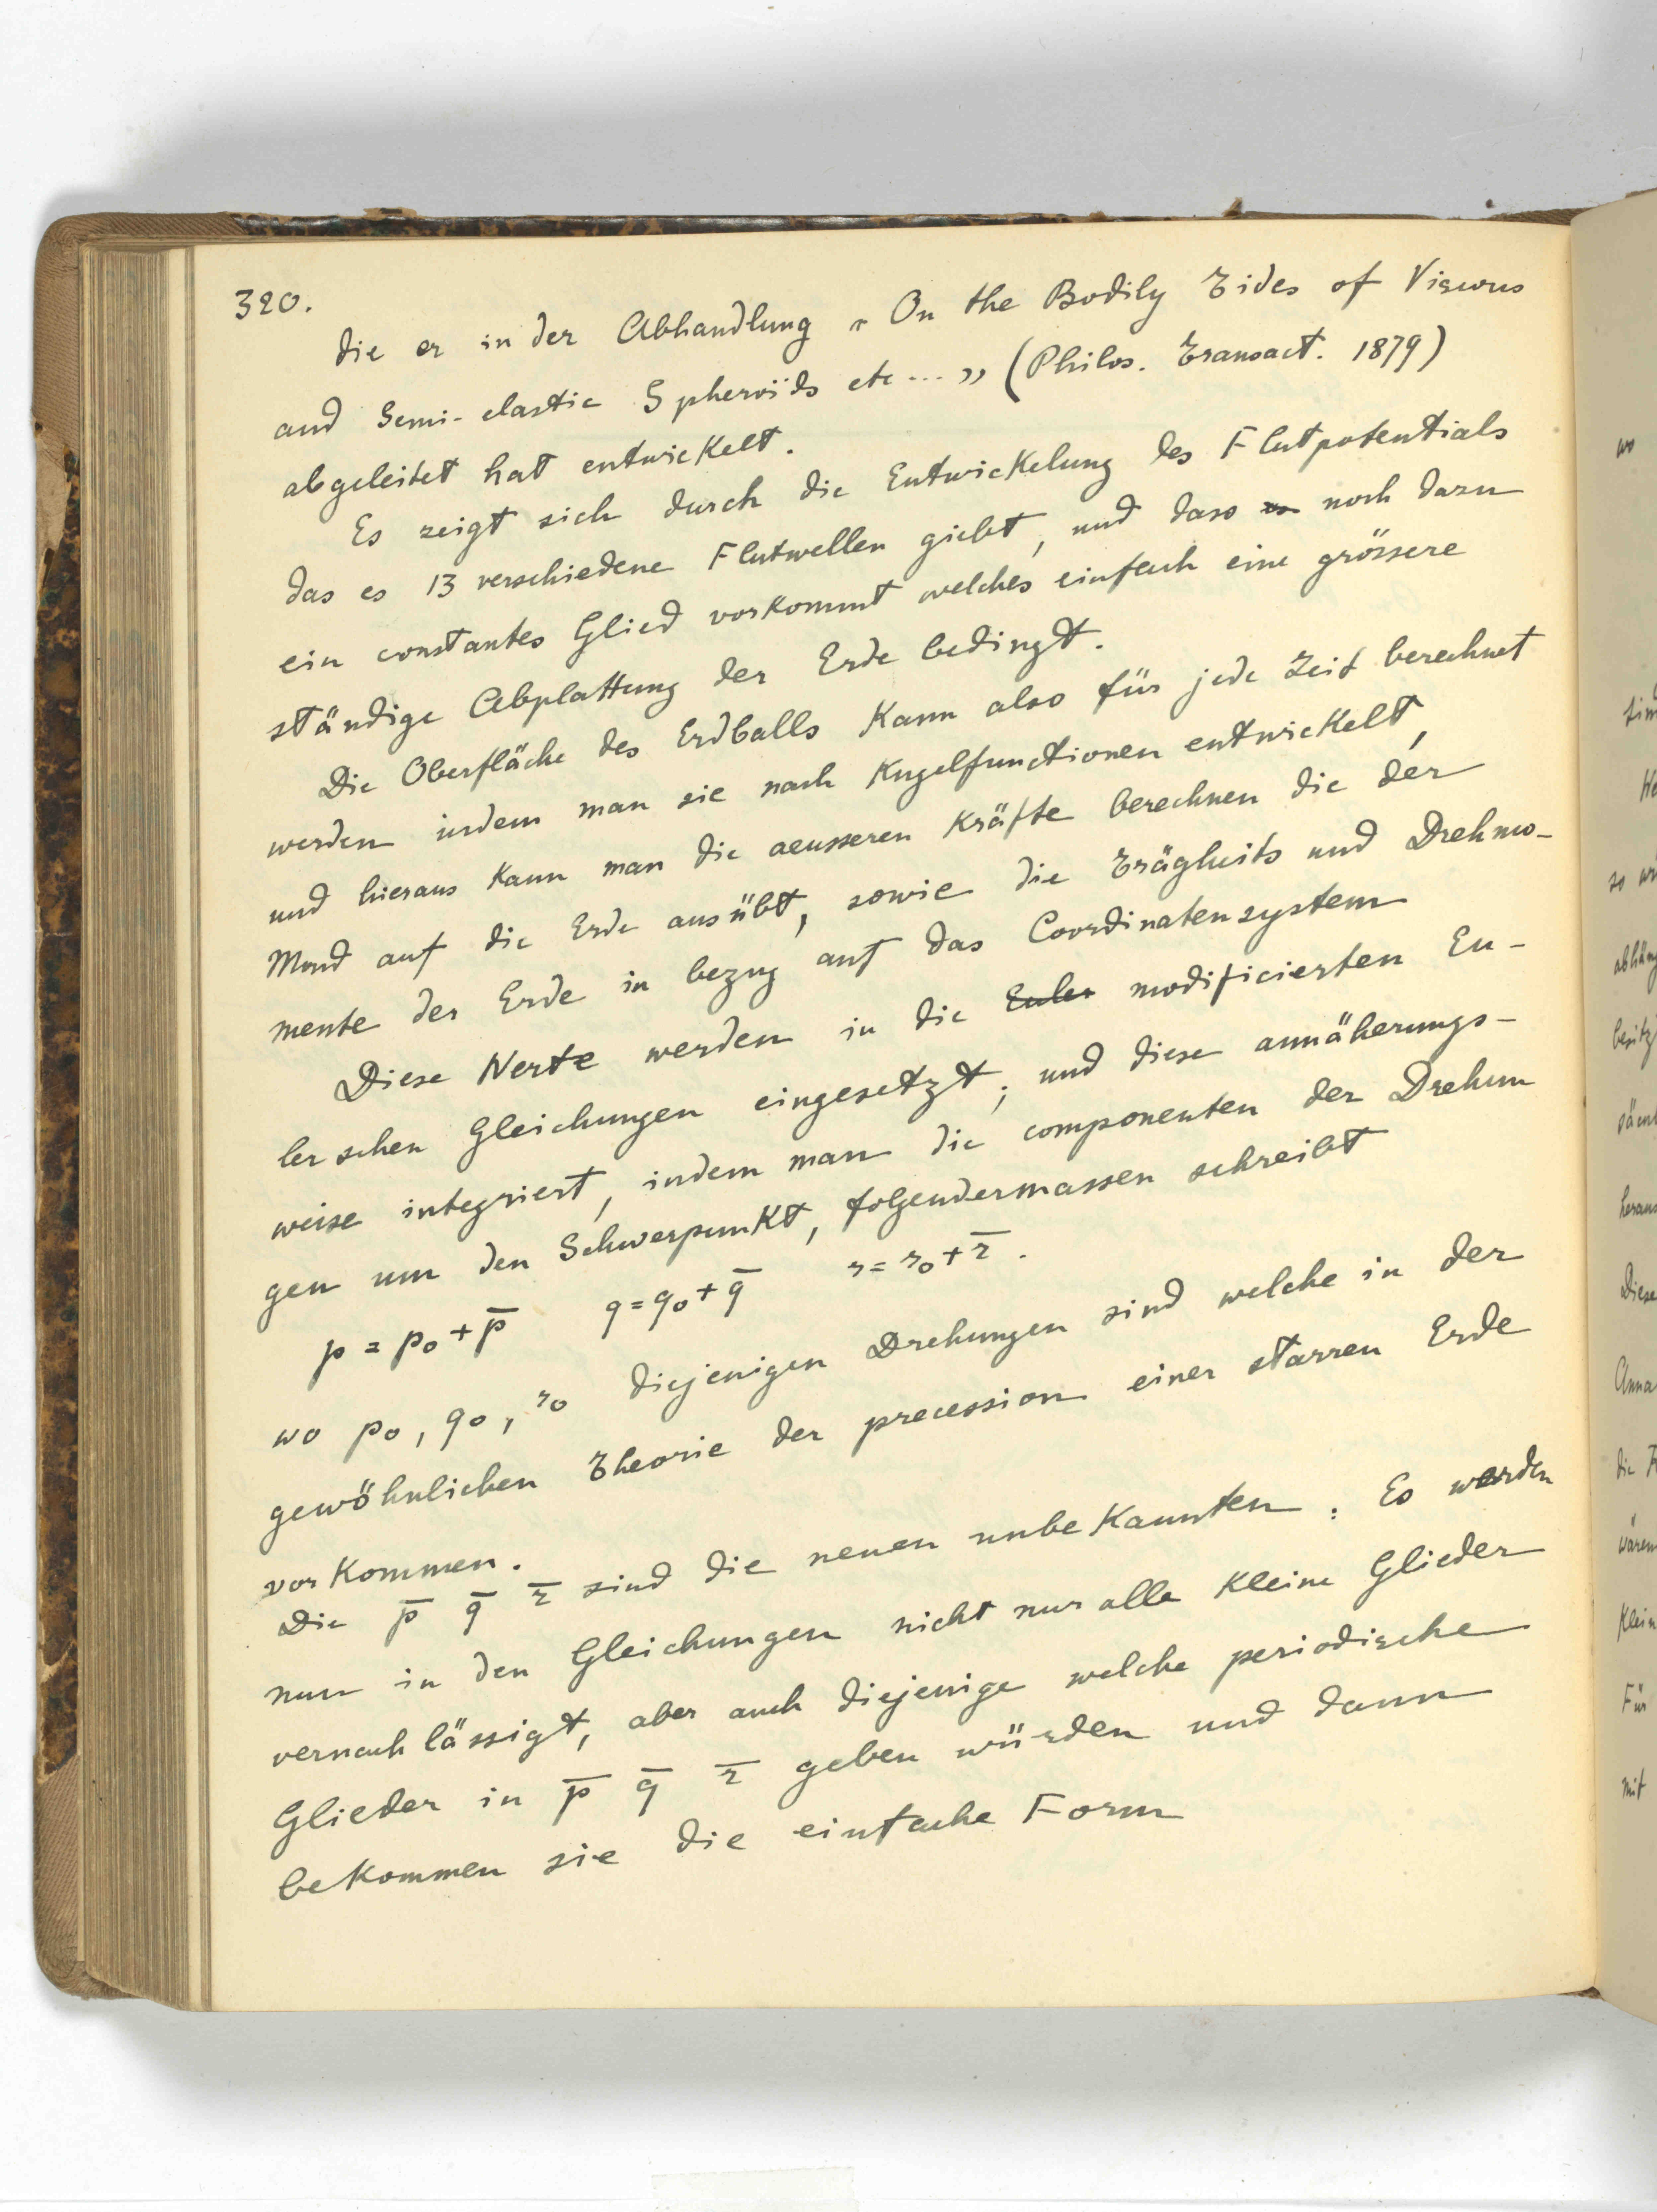 320.
die er in der Abhandlung „ On the Bodily Tides of Viscous
and Semi-elastic Spheroïds etc ... ” (Philos. Transact. 1879)
abgeleitet hat entwickelt.
Es zeigt sich durch die Entwickelung des Flutpotentials
das es 13 verschiedene Flutwellen giebt, und dass es noch dazu
ein constantes Glied vorkommt welches einfach eine grössere
ständige Abplattung der Erde bedingt.
Die Oberfläche des Erdballs kann also für jede Zeit berechnet
werden indem man sie nach Kugelfunctionen entwickelt,
und hieraus kann man die aeusseren Kräfte berechnen die der
Mond auf die Erde ausübt, sowie die Trägheits und Drehmo-
mente der Erde in bezug auf das Coordinatensystem
Diese Werte werden in die Euler modificierten Eu-
lerschen Gleichungen eingesetzt; und diese annäherungs-
weise integriert, indem man die componenten der Drehun
gen um den Schwerpunkt, folgendermassen schreibt
p = p₀ + p̅ q = q₀ + q̅ r = r₀ + r̅ .
wo p₀, q₀, r₀ diejenigen Drehungen sind welche in der
gewöhnlichen Theorie der precession einer starren Erde
vorkommen.
Die p̅ q̅ r̅ sind die neuen unbekannten. Es werden
nun in den Gleichungen nicht nur alle kleine Glieder
vernachlässigt, aber auch diejenige welche periodische
Glieder in p̅ q̅ r̅ geben würden und dann
bekommen sie die einfache Form
wo
so
Diese
die
Für
mit